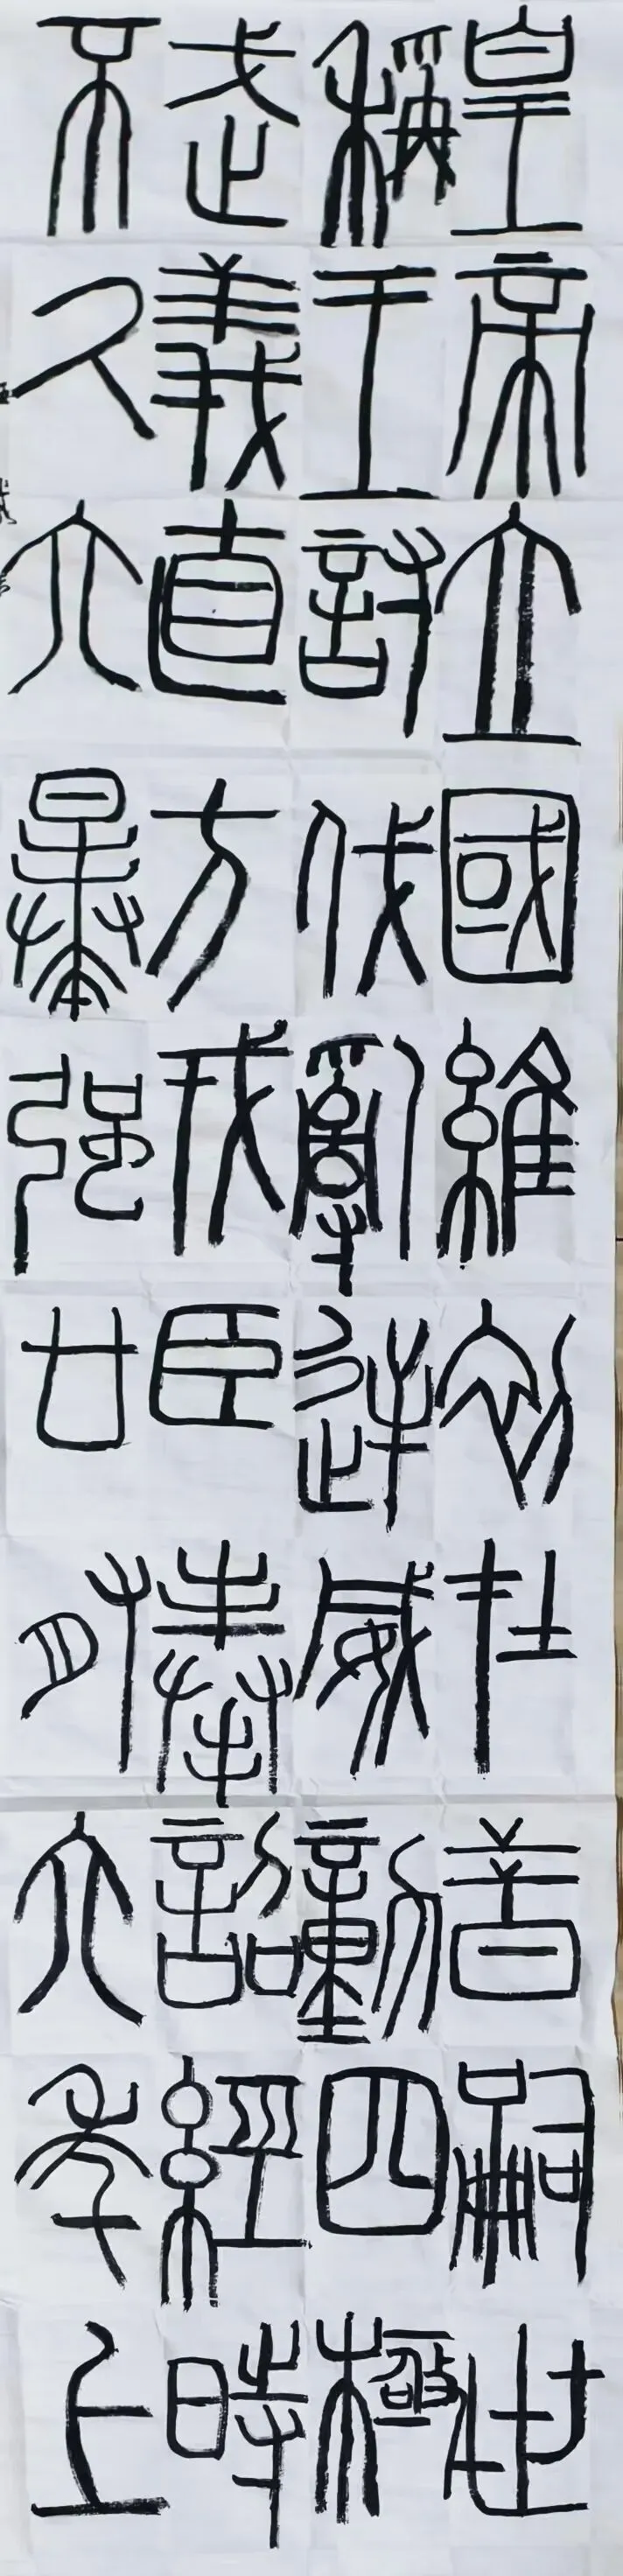 皇帝立國維初在昔嗣世
稱王討伐亂逆威動四極
武義直方戎臣奉詔經時
不久六暴強廿有六年上